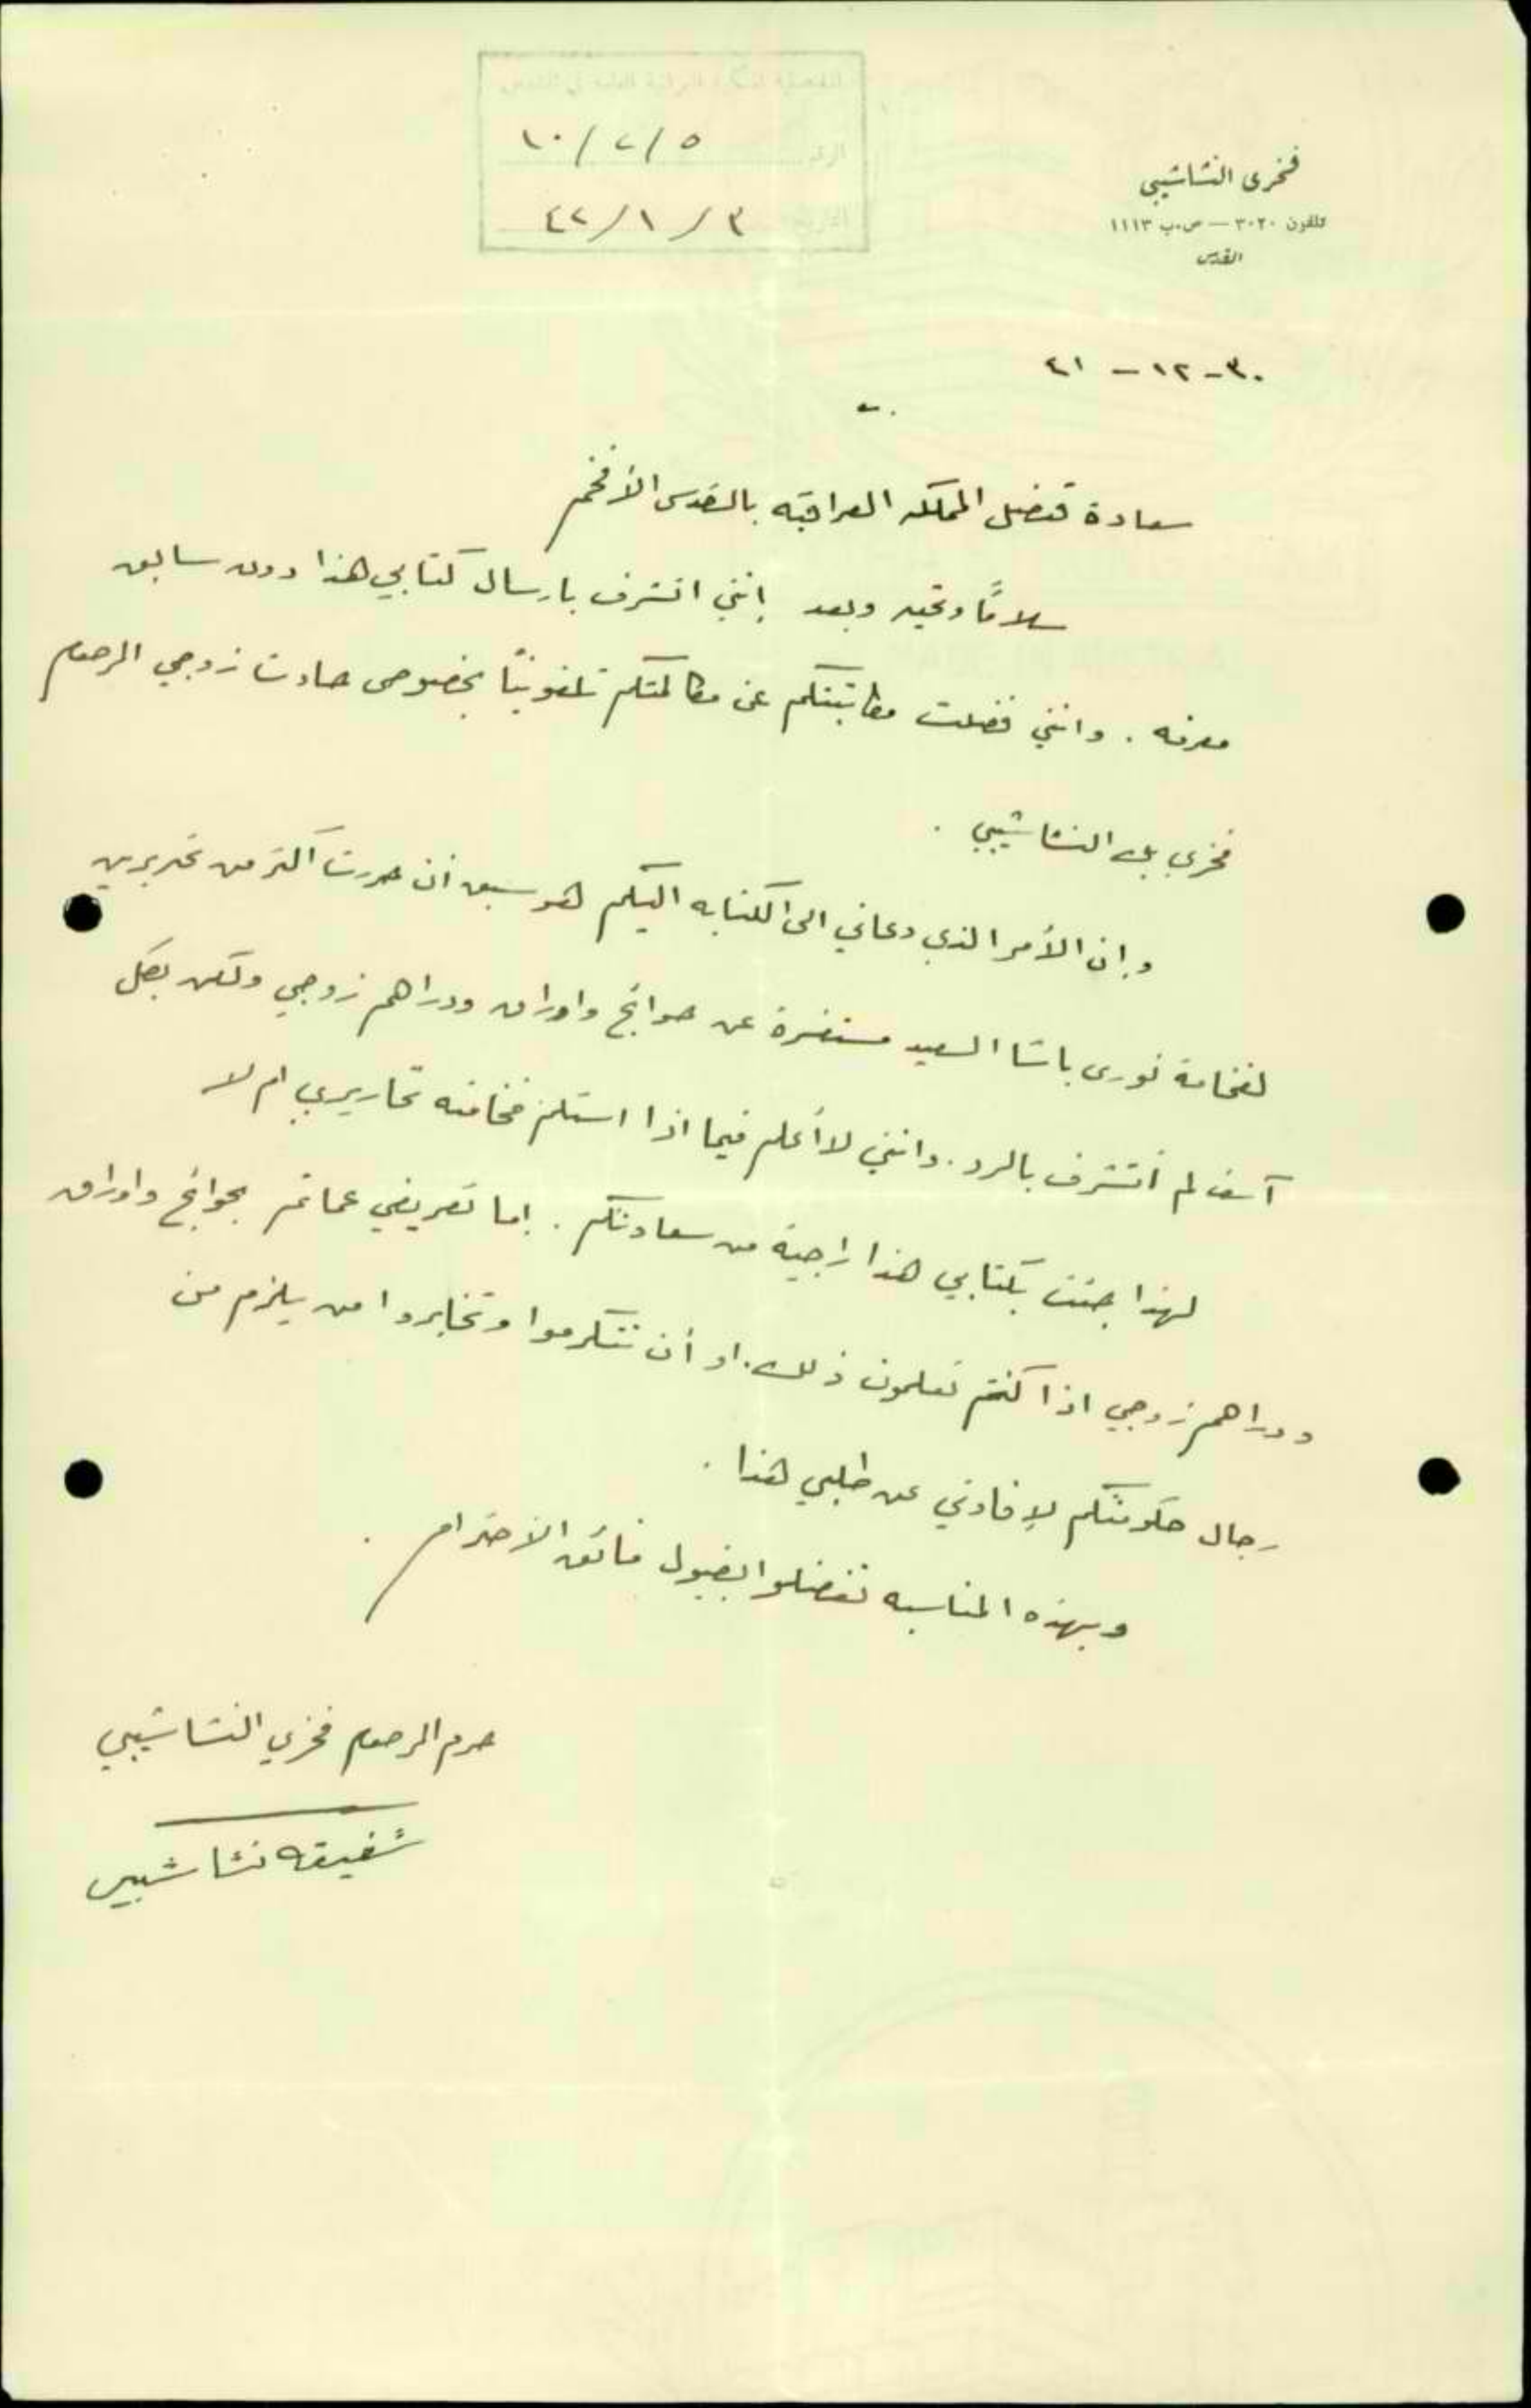 فخرى النشاشيبي
تلفون ٣٠٢٠ — ص.ب ١١١٣
القدس
الرقم ١٠/٢/٥
التاريخ ٤٢/١/٣
٣٠-١٢-٤١
سعادة قنصل المملكه العراقيه بالقدس الأفخم
سلامًا وتحيه وبعد إنني اتشرف بارسال كتابي هذا دون سابق
معرفه . وانني فضلت مكاتبتكم عن مكالمتكم تلفونيًا بخصوص حادث زوجي المرحوم
فخري بك النشاشيبي .
وإن الأمر الذي دعاني الى الكتابه اليكم هو سبق أن حررت اكثر من تحريرين
لفخامة نورى باشا السعيد مستفسرة عن حوائج واوراق ودراهم زوجي ولكن بكل
آسف لم أتشرف بالرد . وانني لا أعلم فيما اذا استلم فخامته تحاريري ام لا
لهذا جئت بكتابي هذا راجية من سعادتكم . إما تعريفي عما تم بحوائج واوراق
ودراهم زوجي اذا كنتم تعلمون ذلك . او أن تتكرموا وتخابروا من يلزم من
رجال حكومتكم لإفادتي عن طلبي هذا .
وبهذه المناسبه تفضلوا بقبول فائق الاحترام .
حرم المرحوم فخري النشاشيبي
شفيقه نشاشيبي